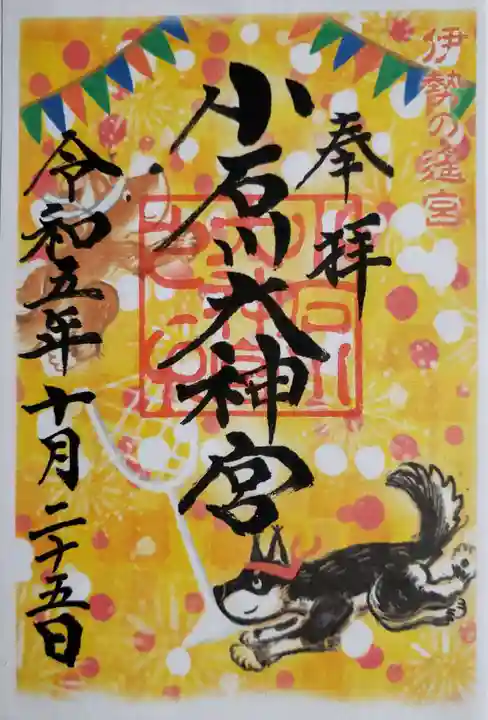 伊勢の遥宮
奉拝
小石川大神宮
令和五年十月二十五日